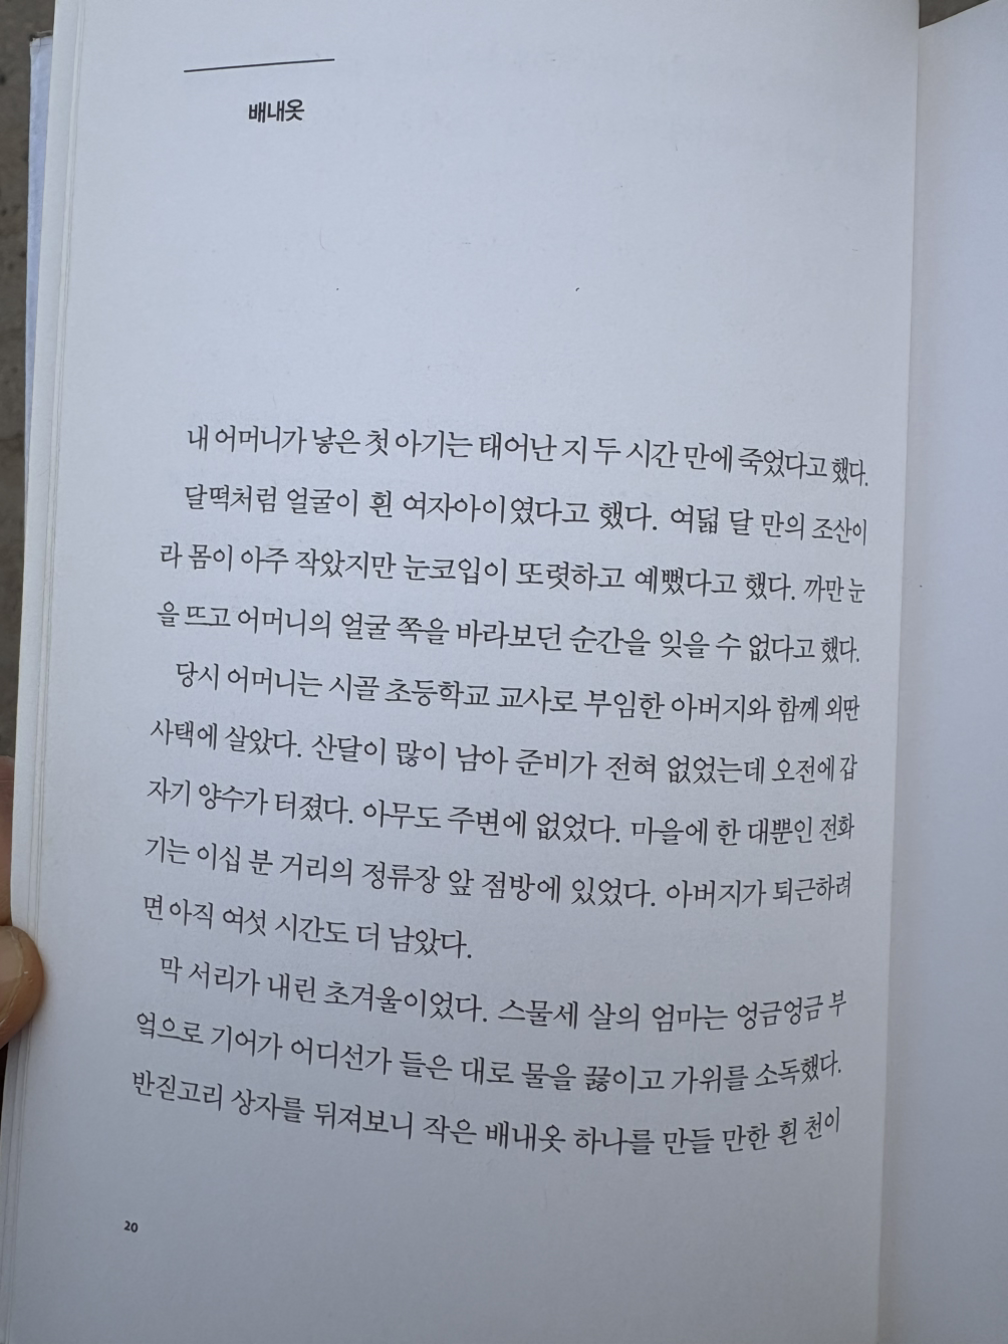 배내옷
내 어머니가 낳은 첫 아기는 태어난 지 두 시간 만에 죽었다고 했다.
달떡처럼 얼굴이 흰 여자아이였다고 했다. 여덟 달 만의 조산이
라 몸이 아주 작았지만 눈코입이 또렷하고 예뻤다고 했다. 까만 눈
을 뜨고 어머니의 얼굴 쪽을 바라보던 순간을 잊을 수 없다고 했다.
당시 어머니는 시골 초등학교 교사로 부임한 아버지와 함께 외딴
사택에 살았다. 산달이 많이 남아 준비가 전혀 없었는데 오전에 갑
자기 양수가 터졌다. 아무도 주변에 없었다. 마을에 한 대뿐인 전화
기는 이십 분 거리의 정류장 앞 점방에 있었다. 아버지가 퇴근하려
면 아직 여섯 시간도 더 남았다.
막 서리가 내린 초겨울이었다. 스물세 살의 엄마는 엉금엉금 부
엌으로 기어가 어디선가 들은 대로 물을 끓이고 가위를 소독했다.
반짇고리 상자를 뒤져보니 작은 배내옷 하나를 만들 만한 흰 천이
20